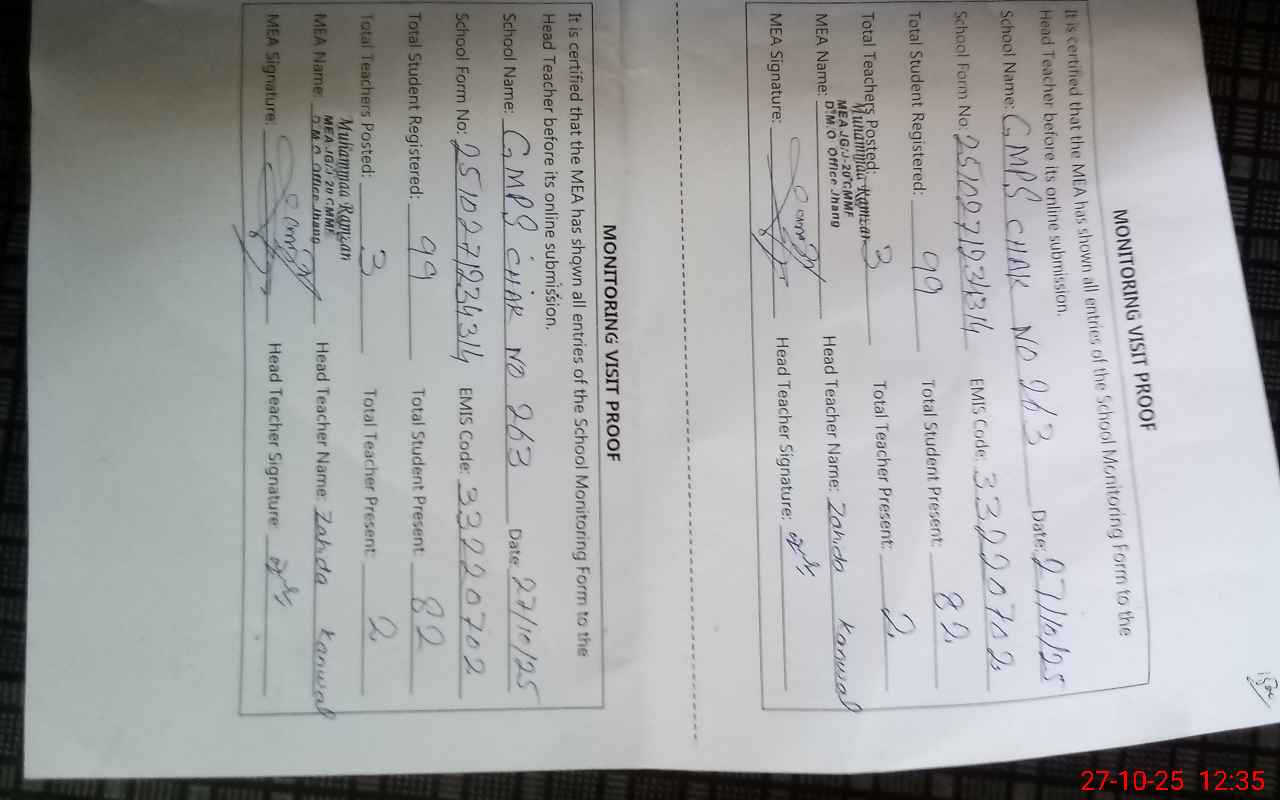 MONITORING VISIT PROOF
It is certified that the MEA has shown all entries of the School Monitoring Form to the
Head Teacher before its online submission.
School Name: GMPS CHAK NO 263 Date: 27/10/25
School Form No: EMIS Code: 33220702
Total Student Registered: 99 Total Student Present: 82
Total Teachers Posted: 3 Total Teacher Present: 2
Muhammad Ramzan
MEA Name: MEA JG/J-20 CMMF Head Teacher Name: Zahida Kanwal
D.M.O Office Jhang
MEA Signature: Head Teacher Signature:
MONITORING VISIT PROOF
It is certified that the MEA has shown all entries of the School Monitoring Form to the
Head Teacher before its online submission.
School Name: GMPS CHAK NO 263 Date: 27/10/25
School Form No: EMIS Code: 33220702
Total Student Registered: 99 Total Student Present: 82
Total Teachers Posted: 3 Total Teacher Present: 2
Muhammad Ramzan
MEA Name: MEA JG/J-20 CMMF Head Teacher Name: Zahida Kanwal
D.M.O Office Jhang
MEA Signature: Head Teacher Signature:
27-10-25 12:35